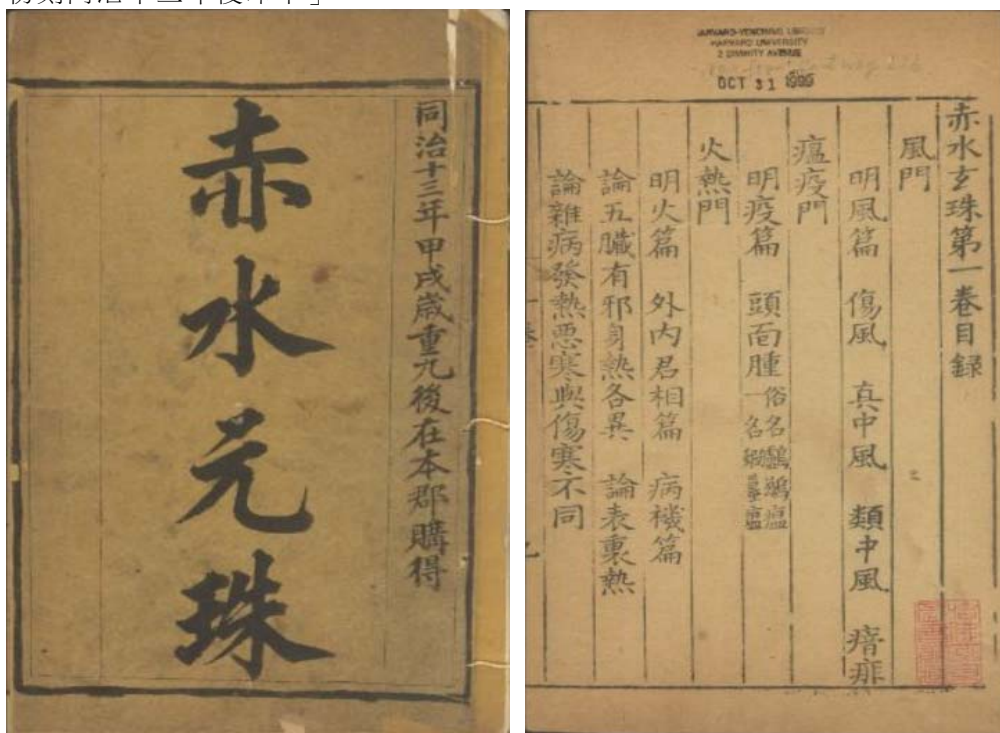 同治十三年甲戌歲重九後在本郡購得
赤水元珠
HARVARD-YENCHING LIBRARY
HARVARD UNIVERSITY
2 DIVINITY AVENUE
OCT 31 1935
赤水玄珠第一卷目録
風門
明風篇 傷風 真中風 類中風 瘖痱
瘟疫門
明疫篇 頭面腫 俗名鸕鷀瘟
一名蝦蟇瘟
火熱門
明火篇 外内君相篇 病機篇
論五臟有邪身熱各異 論表裏熱
論雜病發熱惡寒與傷寒不同